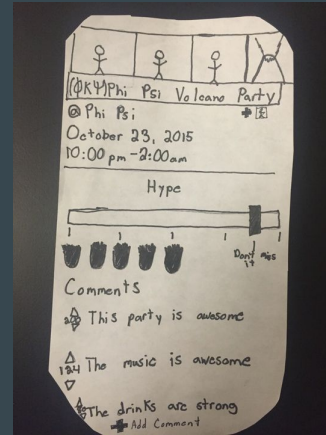 (ΦΚΨ) Phi Psi Volcano Party
@ Phi Psi
October 23, 2015
10:00 pm - 2:00am
Hype
Don't miss
it
Comments
This party is awesome
124 The music is awesome
The drinks are strong
Add Comment